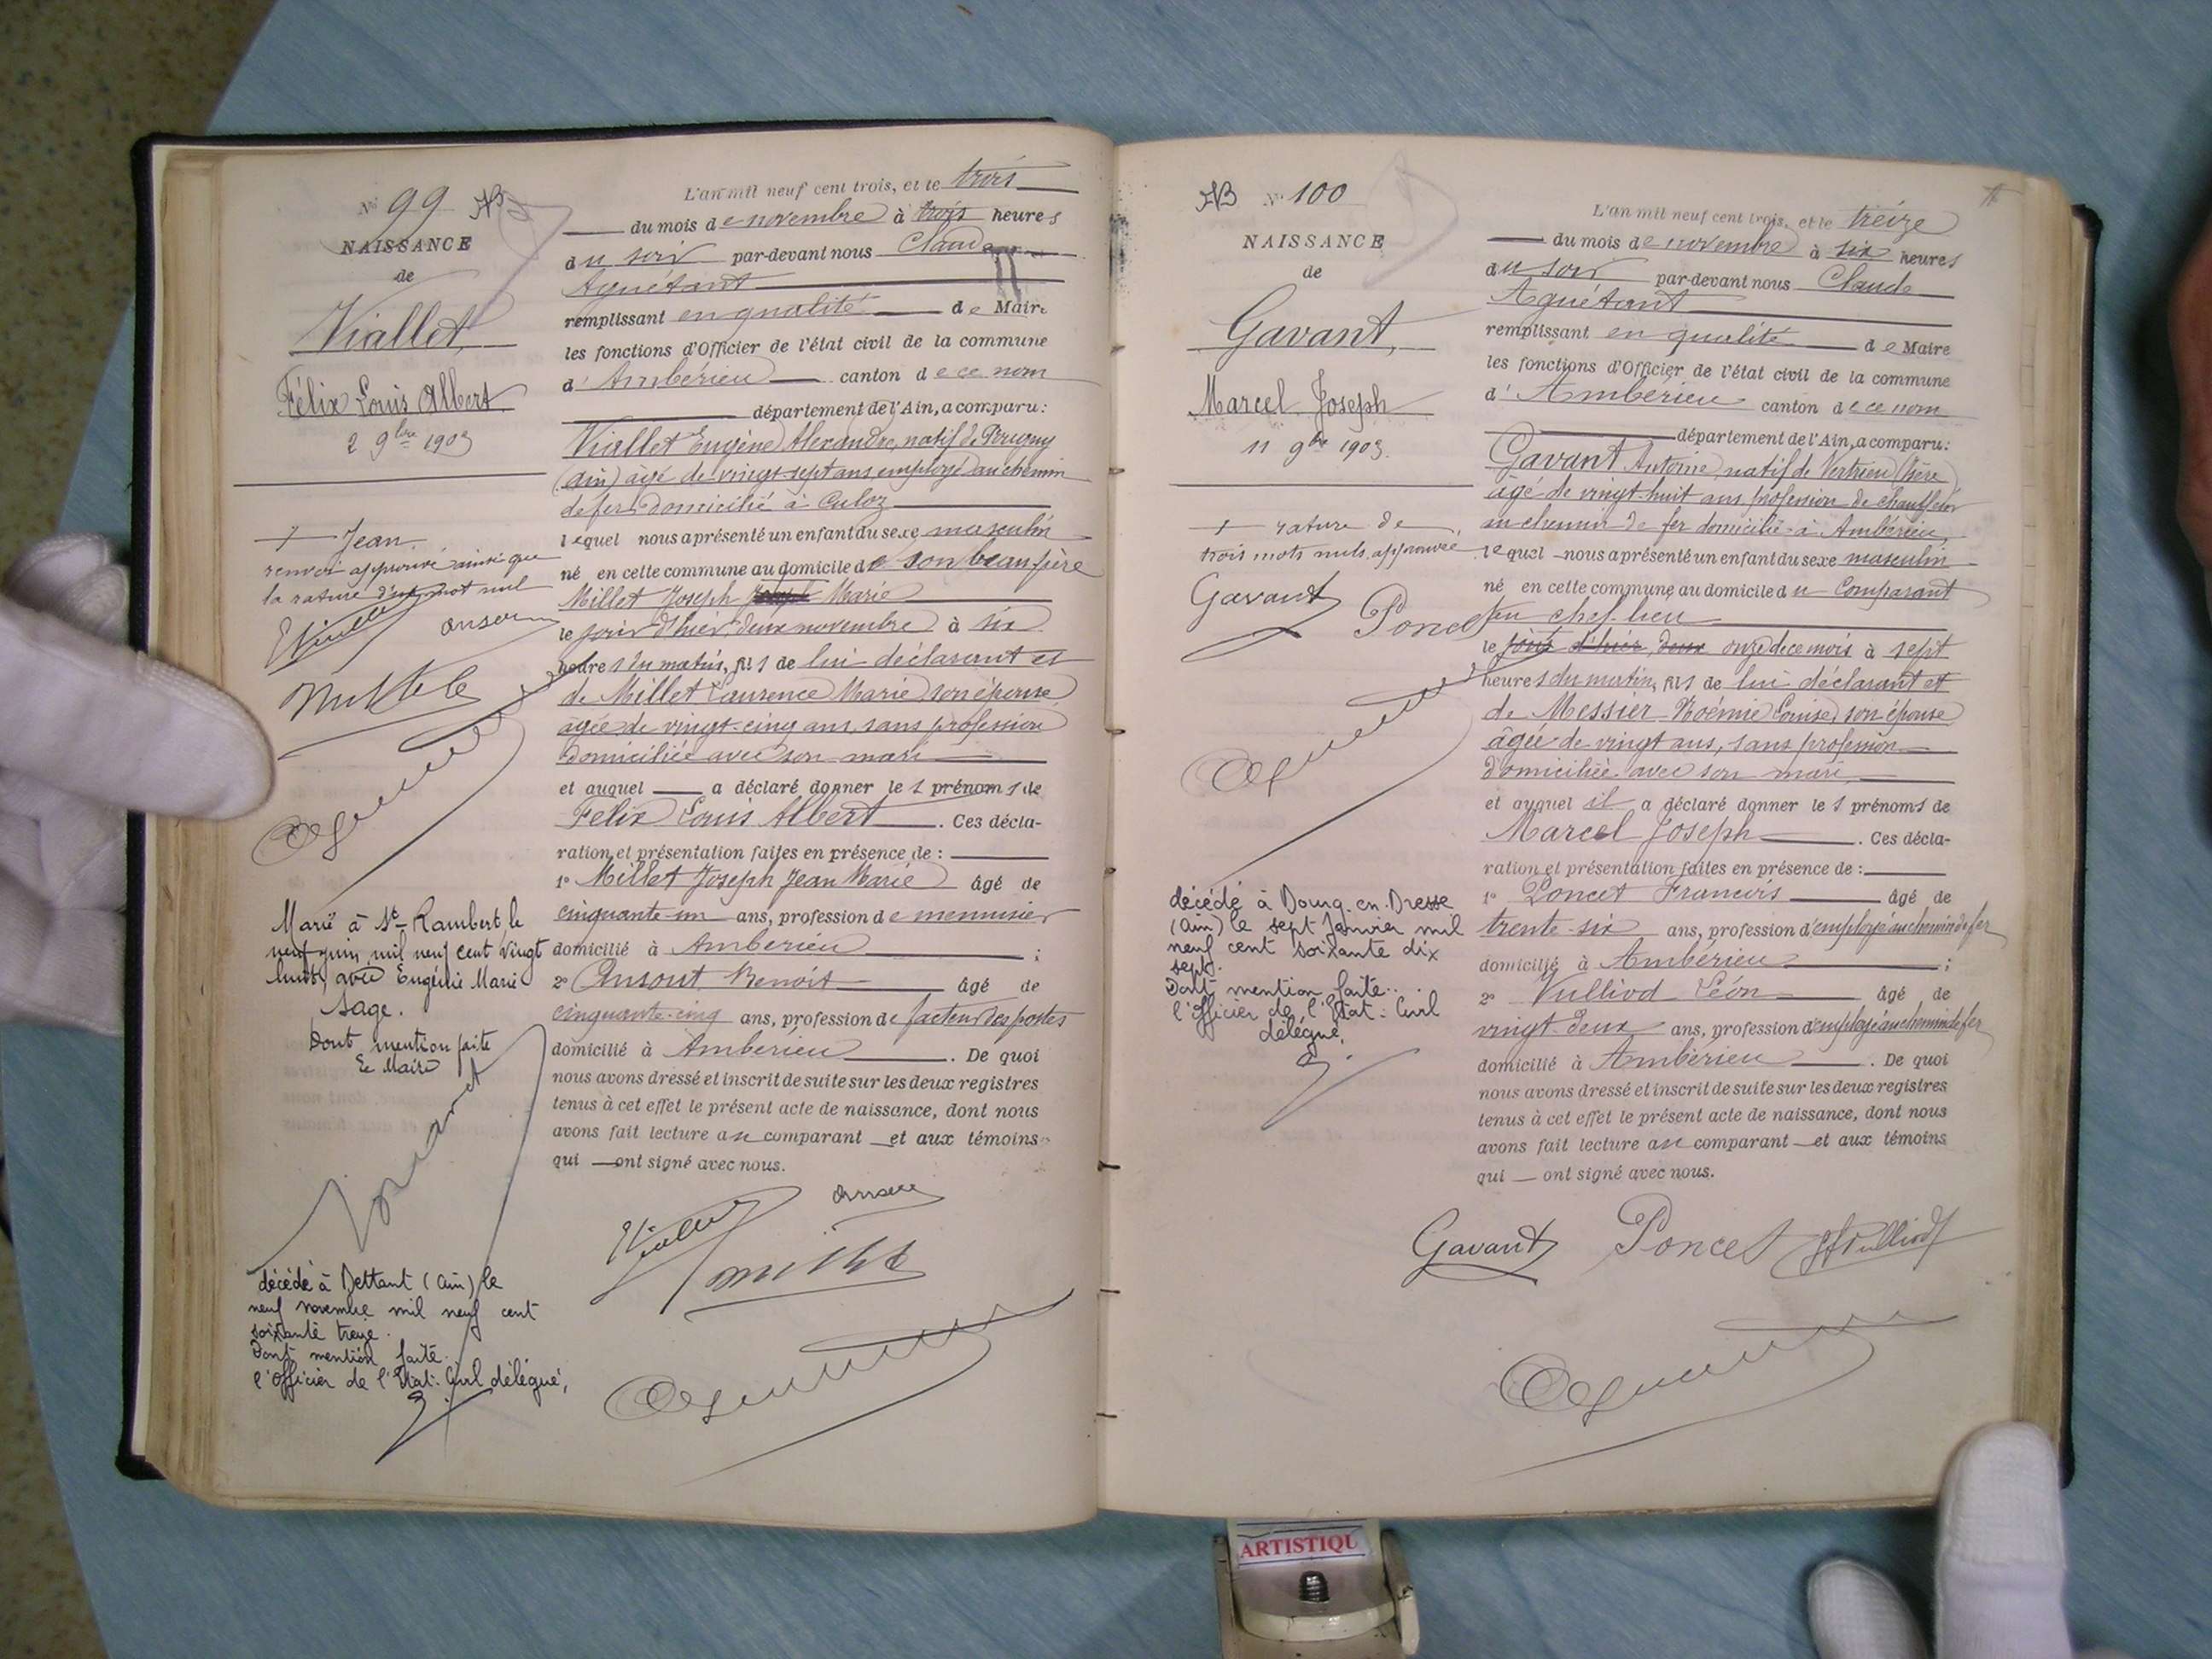 N° 99
NAISSANCE
de
Viallet,
Félix Louis Albert
2 9bre 1903
+ Jean
renvoi approuvé ainsi que
la rature d'un mot nul
Marié à St Rambert, le
neuf juin mil neuf cent vingt
huit, avec Eugénie Marie
Sage.
Dont mention faite
Le Maire
décédé à Bettant (Ain) le
neuf novembre mil neuf cent
soixante treize.
Dont mention faite.
l'Officier de l'Etat-Civil délégué,
L'an mil neuf cent trois, et le trois
du mois de novembre à trois heures
du soir par-devant nous Claude
Aguétant
remplissant en qualité de Maire
les fonctions d'Officier de l'état civil de la commune
d'Ambérieu canton de ce nom
département de l'Ain, a comparu:
Viallet Eugène Alexandre, natif de
(Ain) âgé de vingt-sept ans, employé au chemin
de fer domicilié à Culoz
lequel nous a présenté un enfant du sexe masculin
né en cette commune au domicile de son beau père
Millet Joseph Marie
le jour d'hier, deux novembre à six
heures du matin, fils de lui déclarant et
de Millet Laurence Marie, son épouse
âgée de vingt-cinq ans, sans profession
domiciliée avec son mari
et auquel a déclaré donner les prénoms de
Félix Louis Albert. Ces décla-
ration et présentation faites en présence de :
1° Millet Joseph Jean Marie âgé de
cinquante-un ans, profession de menuisier
domicilié à Ambérieu ;
2° Benoît âgé de
cinquante-cinq ans, profession de facteur des postes
domicilié à Ambérieu. De quoi
nous avons dressé et inscrit de suite sur les deux registres
tenus à cet effet le présent acte de naissance, dont nous
avons fait lecture au comparant et aux témoins
qui ont signé avec nous.
N° 100
NAISSANCE
de
Gavant,
Marcel Joseph
11 9bre 1903.
+ rature de
trois mots nuls approuvée
Gavant
Poncet
décédé à Bourg-en-Bresse
(Ain) le sept Janvier mil
neuf cent soixante dix
sept.
Dont mention faite..
l'Officier de l'Etat-Civil
délégué,
L'an mil neuf cent trois, et le treize
du mois de novembre à six heures
du soir par-devant nous Claude
Aguétant
remplissant en qualité de Maire
les fonctions d'Officier de l'état civil de la commune
d'Ambérieu canton de ce nom
département de l'Ain, a comparu:
Gavant Antoine, natif de Vertrieu (Isère)
âgé de vingt-huit ans, profession de chauffeur
au chemin de fer domicilié à Ambérieu,
lequel nous a présenté un enfant du sexe masculin
né en cette commune au domicile du Comparant
au chef-lieu
le jour d'hier, deux onze de ce mois à sept
heures du matin, fils de lui déclarant et
de Messier Noémie Louise, son épouse
âgée de vingt ans, sans profession
domiciliée avec son mari
et auquel il a déclaré donner les prénoms de
Marcel Joseph. Ces décla-
ration et présentation faites en présence de :
1° Poncet Francois âgé de
trente-six ans, profession d'employé au chemin de fer
domicilié à Ambérieu ;
2° Vulliod Léon âgé de
vingt-deux ans, profession d'employé au chemin de fer
domicilié à Ambérieu. De quoi
nous avons dressé et inscrit de suite sur les deux registres
tenus à cet effet le présent acte de naissance, dont nous
avons fait lecture au comparant et aux témoins
qui ont signé avec nous.
Gavant Poncet Vulliod
ARTISTIQU